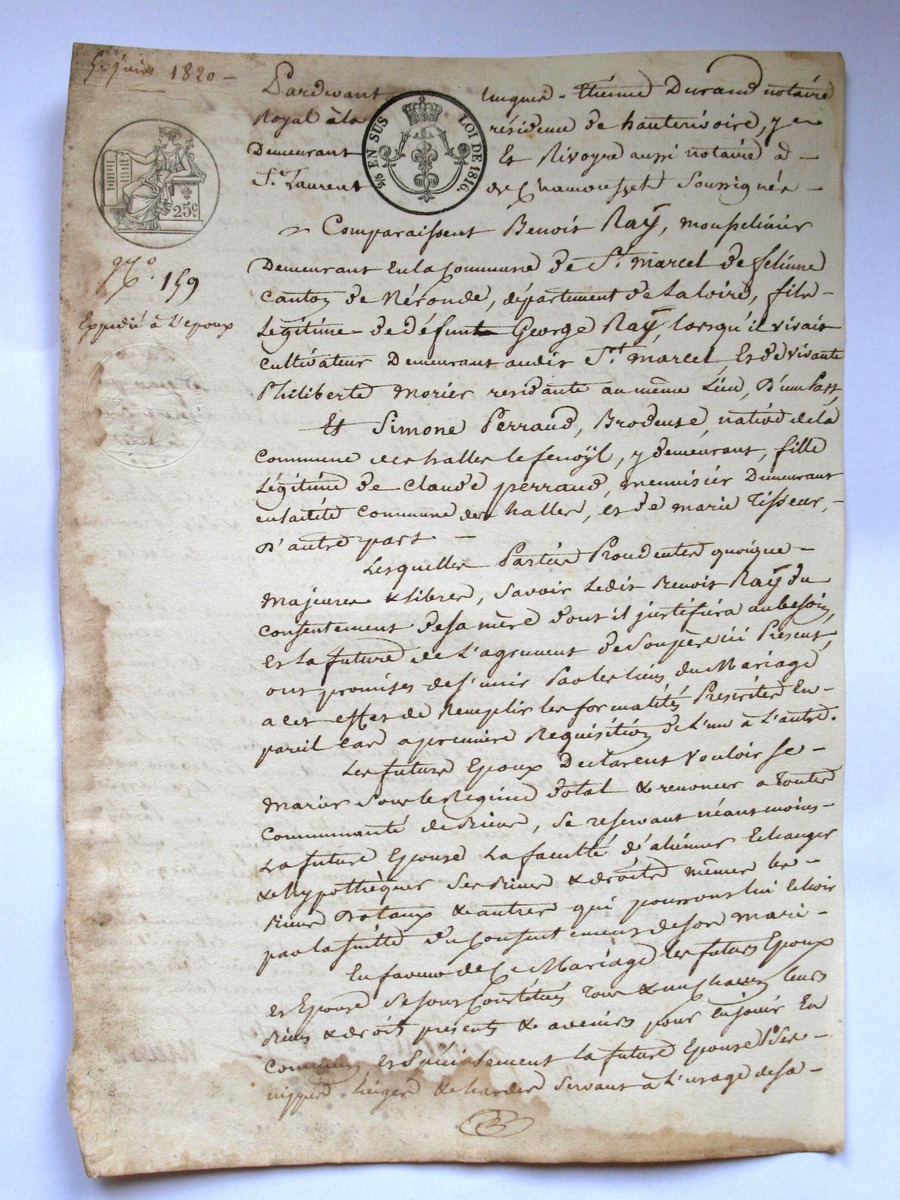 5 juin 1820
25c
N.o 159
Expédié à L'epoux
⅖ EN SUS LOI DE 1816.
Pardevant Etienne Durand notaire
Royal à la résidence de hauterivoire, y
Demeurant Et Rivoyre aussi notaire à
St. Laurent de Chamousset Soussignés
Comparaissent Benoit Raÿ, mousselinier
Demeurant En la Commune de St. marcel de felinne
Canton de Néronde, département de La loire, fils
Légitime de défunt George Raÿ, lorsqu'il vivait
Cultivateur Demeurant audit St. marcel, Et de vivante
Philiberte Morier residante au même Lieu, D'une Part,
Et Simone Perraud, Brodeuse, native de la
Commune des halles le fenoÿl, y demeurant, fille
Légitime de Claude perraud, menuisier Demeurant
en ladite Commune des halles, et de marie Tisseur,
D'autre part
Lesquelles Parties Procedentes quoique
Majeures & libres, Savoir Ledit Benoit Raÿ du
Consentement de sa mère dont il justifiera au besoin,
Et La future de L'agrement de Son père ici Présent,
ont promises de s'unir Par les liens du Mariage
a cet effet de Remplir les formalités Prescrites En
pareil Cas a première Requisition de L'un à L'autre.
Les future Epoux Declarent Vouloir Se
Marier Sous le Régime Dotal & renoncer a Toutes
Communauté de Biens, Se reservant néantmoins
La future Epouse La faculté d'aliéner Echanger
& hypothèquer Ses Biens & droits mêmes les
Biens Dotaux & autres qui pourront lui Echoir
par la suitte du Consentement de son Mari
En faveur de Ce Mariage les futurs Epoux
et Epouse Se sont Constitués Tous & un chacun leurs
Biens & droits présents & avenirs pour En jouir En
Commun, et Spécialement La future Epouse Ses
nippes Linges & hardes Servant à L'usage de sa